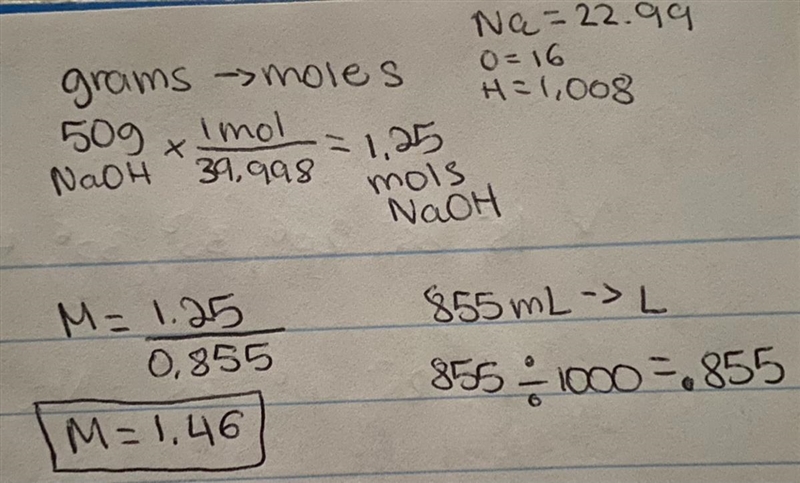 Na = 22.99
O = 16
H = 1,008
grams → moles
50g NaOH × 1 mol / 39,998 = 1,25 mols NaOH
M = 1.25 / 0,855
855 mL -> L
855 ÷ 1000 = .855
M = 1.46